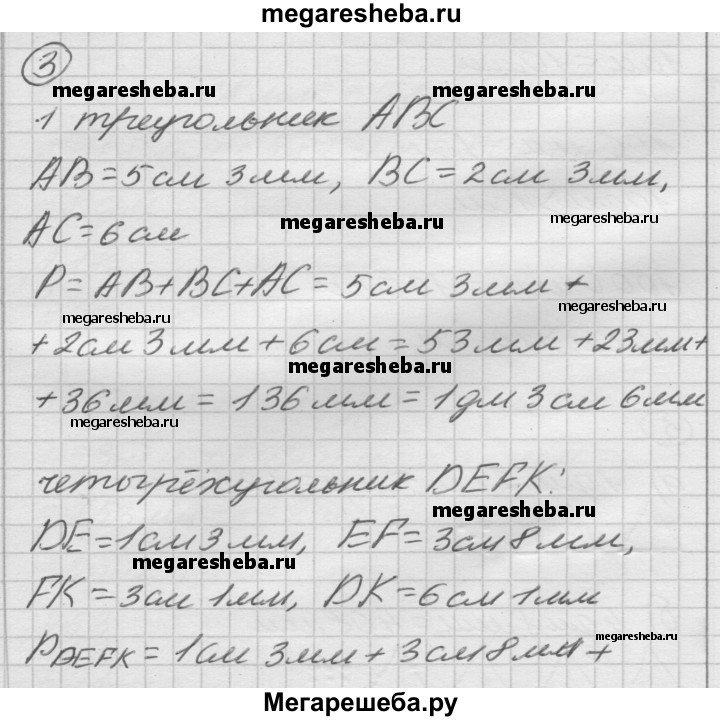 megaresheba.ru
3
megaresheba.ru
1 треугольник ABC
AB=5см 3мм, BC=2см 3мм,
megaresheba.ru
megaresheba.ru
AC=6см
P=AB+BC+AC=5см 3мм+
megaresheba.ru
megaresheba.ru
+2см 3мм+6см=53мм+23мм+
megaresheba.ru
+36мм=136мм=1дм 3см 6мм
megaresheba.ru
четырёхугольник DEFK:
megaresheba.ru
DE=1см 3мм, EF=3см 8мм,
megaresheba.ru
FK=3см 1мм, DK=6см 1мм
megaresheba.ru
PDEFK=1см 3мм+3см 8мм+
Мегарешеба.ру